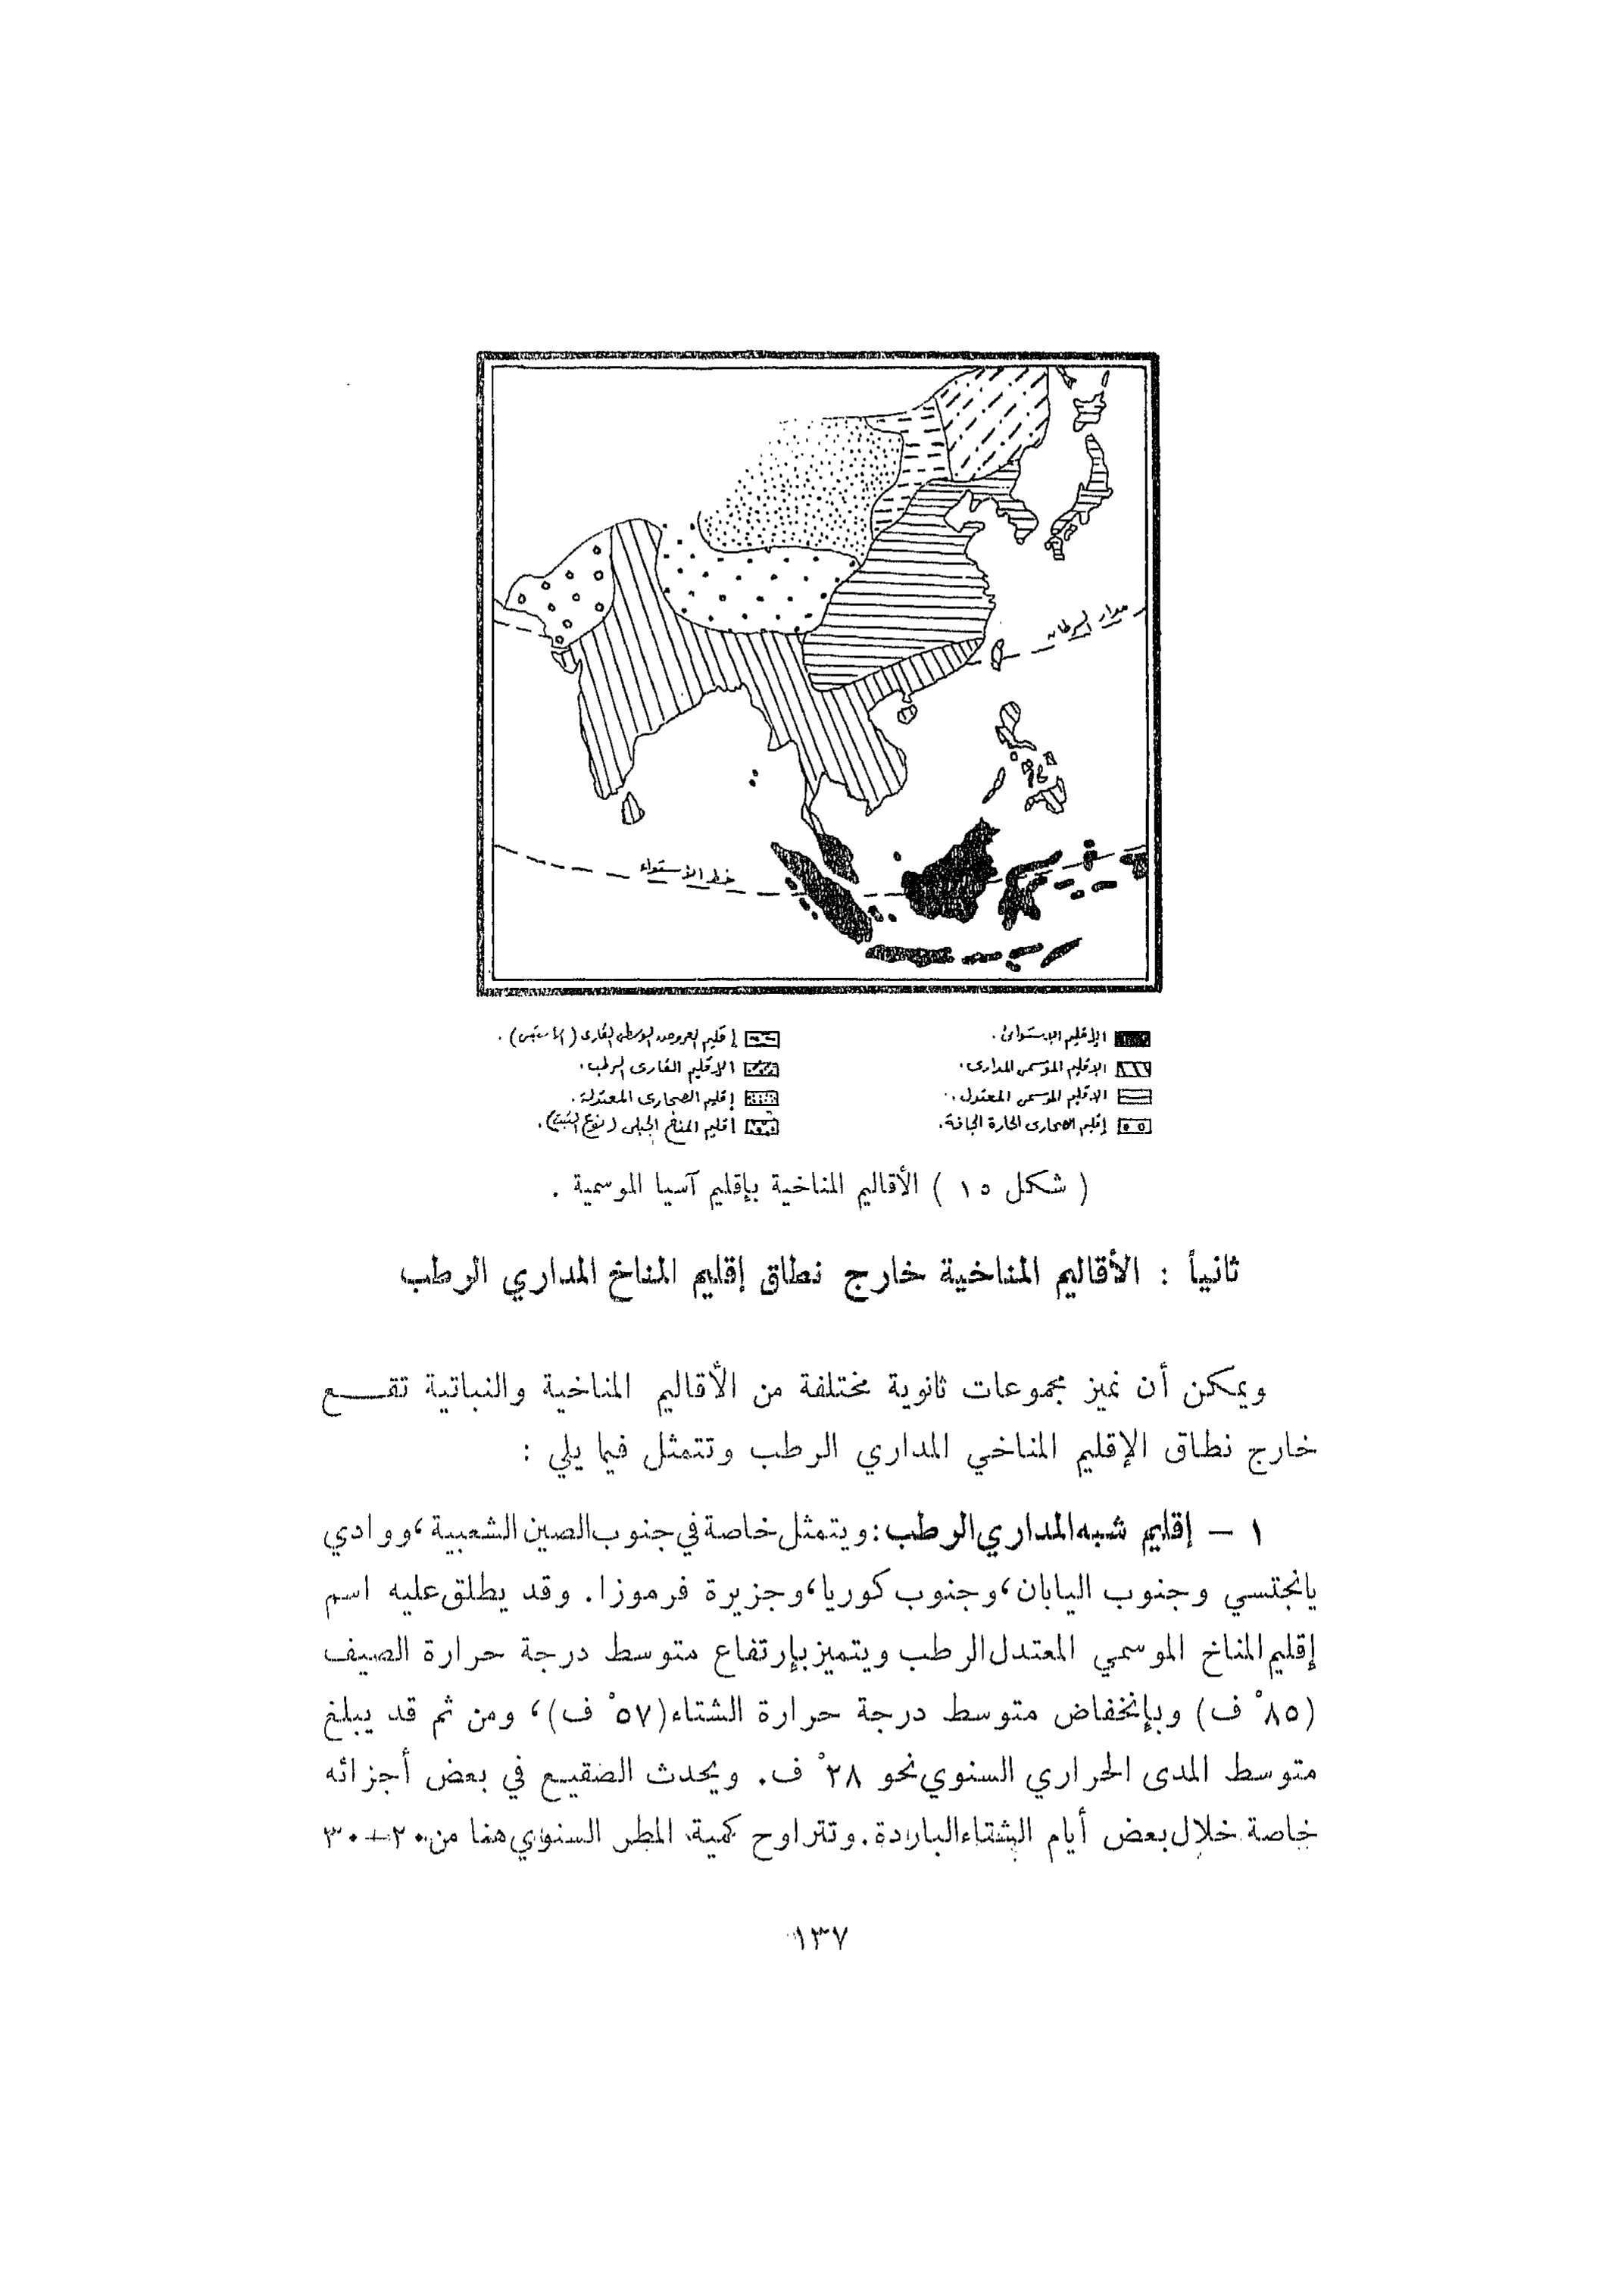 مدار السرطان
خط الاستواء
الإقليم الاستوائى .
الاقليم الموسمى المدارى .
الاقليم الموسمى المعتدل .
إقليم الصحارى الحارة الجافة .
إقليم العروض الوسطى القارى ( الاستبس ) .
الاقليم القارى الرطب .
إقليم الصحارى المعتدلة .
اقليم المناخ الجبلى ( نوع التبت ) .
( شكل ١٥ ) الأقاليم المناخية بإقليم آسيا الموسمية .
ثانياً : الأقاليم المناخية خارج نطاق إقليم المناخ المداري الرطب
ويمكن أن نميز مجموعات ثانوية مختلفة من الأقاليم المناخية والنباتية تقـــع
خارج نطاق الإقليم المناخي المداري الرطب وتتمثل فيما يلي :
١ – إقليم شبه المداري الرطب : ويتمثل خاصة في جنوب الصين الشعبية ، ووادي
يانجتسي وجنوب اليابان ، وجنوب كوريا ، وجزيرة فرموزا . وقد يطلق عليه اسم
إقليم المناخ الموسمي المعتدل الرطب ويتميز بإرتفاع متوسط درجة حرارة الصيف
(٨٥° ف) وبإنخفاض متوسط درجة حرارة الشتاء (٥٧° ف) ، ومن ثم قد يبلغ
متوسط المدى الحراري السنوي نحو ٢٨° ف . ويحدث الصقيع في بعض أجزائه
خاصة خلال بعض أيام الشتاء الباردة . وتتراوح كمية المطر السنوي هنا من ٢٠–٣٠
١٣٧